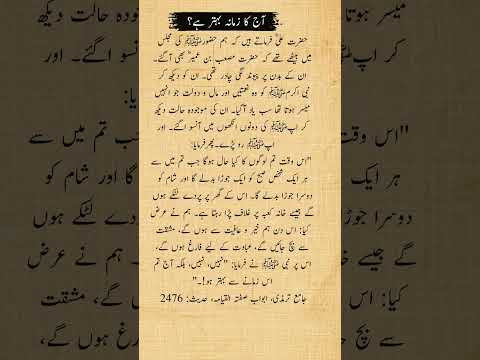 آج کا زمانہ بہتر ہے؟
حضرت علیؓ فرماتے ہیں کہ ہم حضورﷺ کی مجلس
میں بیٹھے تھے کہ حضرت مصعب بن عمیرؓ بھی آگئے۔
ان کے بدن پر پیوند لگی چادر تھی۔ ان کو دیکھ کر
نبی اکرمﷺ کو وہ نعمتیں اور مال و دولت جو انہیں
میسر ہوتا تھا سب یاد آگیا۔ ان کی موجودہ حالت دیکھ
کر آپﷺ کی دونوں آنکھوں میں آنسو اگئے۔ اور
آپﷺ رو پڑے۔ پھر فرمایا:
"اس وقت تم لوگوں کا کیا حال ہوگا جب تم میں سے
ہر ایک شخص صبح کو ایک جوڑا بدلے گا اور شام کو
دوسرا جوڑا بدلے گا۔ اس کے گھر پر پردے لٹکے ہوں
گے جیسے خانہ کعبہ پر غلاف پڑا رہتا ہے۔ ہم نے عرض
کیا: اس دن ہم خیر و عافیت سے ہوں گے، مشقت
سے بچ جائیں گے، عبادت کے لیے فارغ ہوں گے،
اس پر نبی ﷺ نے فرمایا: "نہیں، نہیں، بلکہ آج تم
اس زمانے سے بہتر ہو!۔"
جامع ترمذی، ابواب صفتہ القیامہ، حدیث: 2476